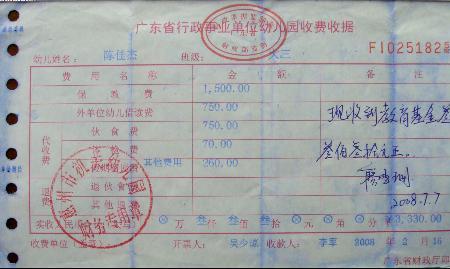 广东省行政事业单位幼儿园收费收据
FI025182
幼儿姓名: 陈佳杰 班级: 大三
费用名称 金额
保教费 1,500.00
外单位幼儿借读费 750.00
代收费 伙食费 750.00
70.00
其他费用 260.00
退费 退伙食费
其他退费
现收到教育基金叁
叁佰叁拾元正。
2008.7.7
实收人民币 万 叁仟 叁佰 叁拾 元 角 分 ¥3,330.00
收费单位(盖章): 开票人: 吴少凉 收款人: 李苹 2008年2月16
广东省财政厅
惠州市
财务专用章